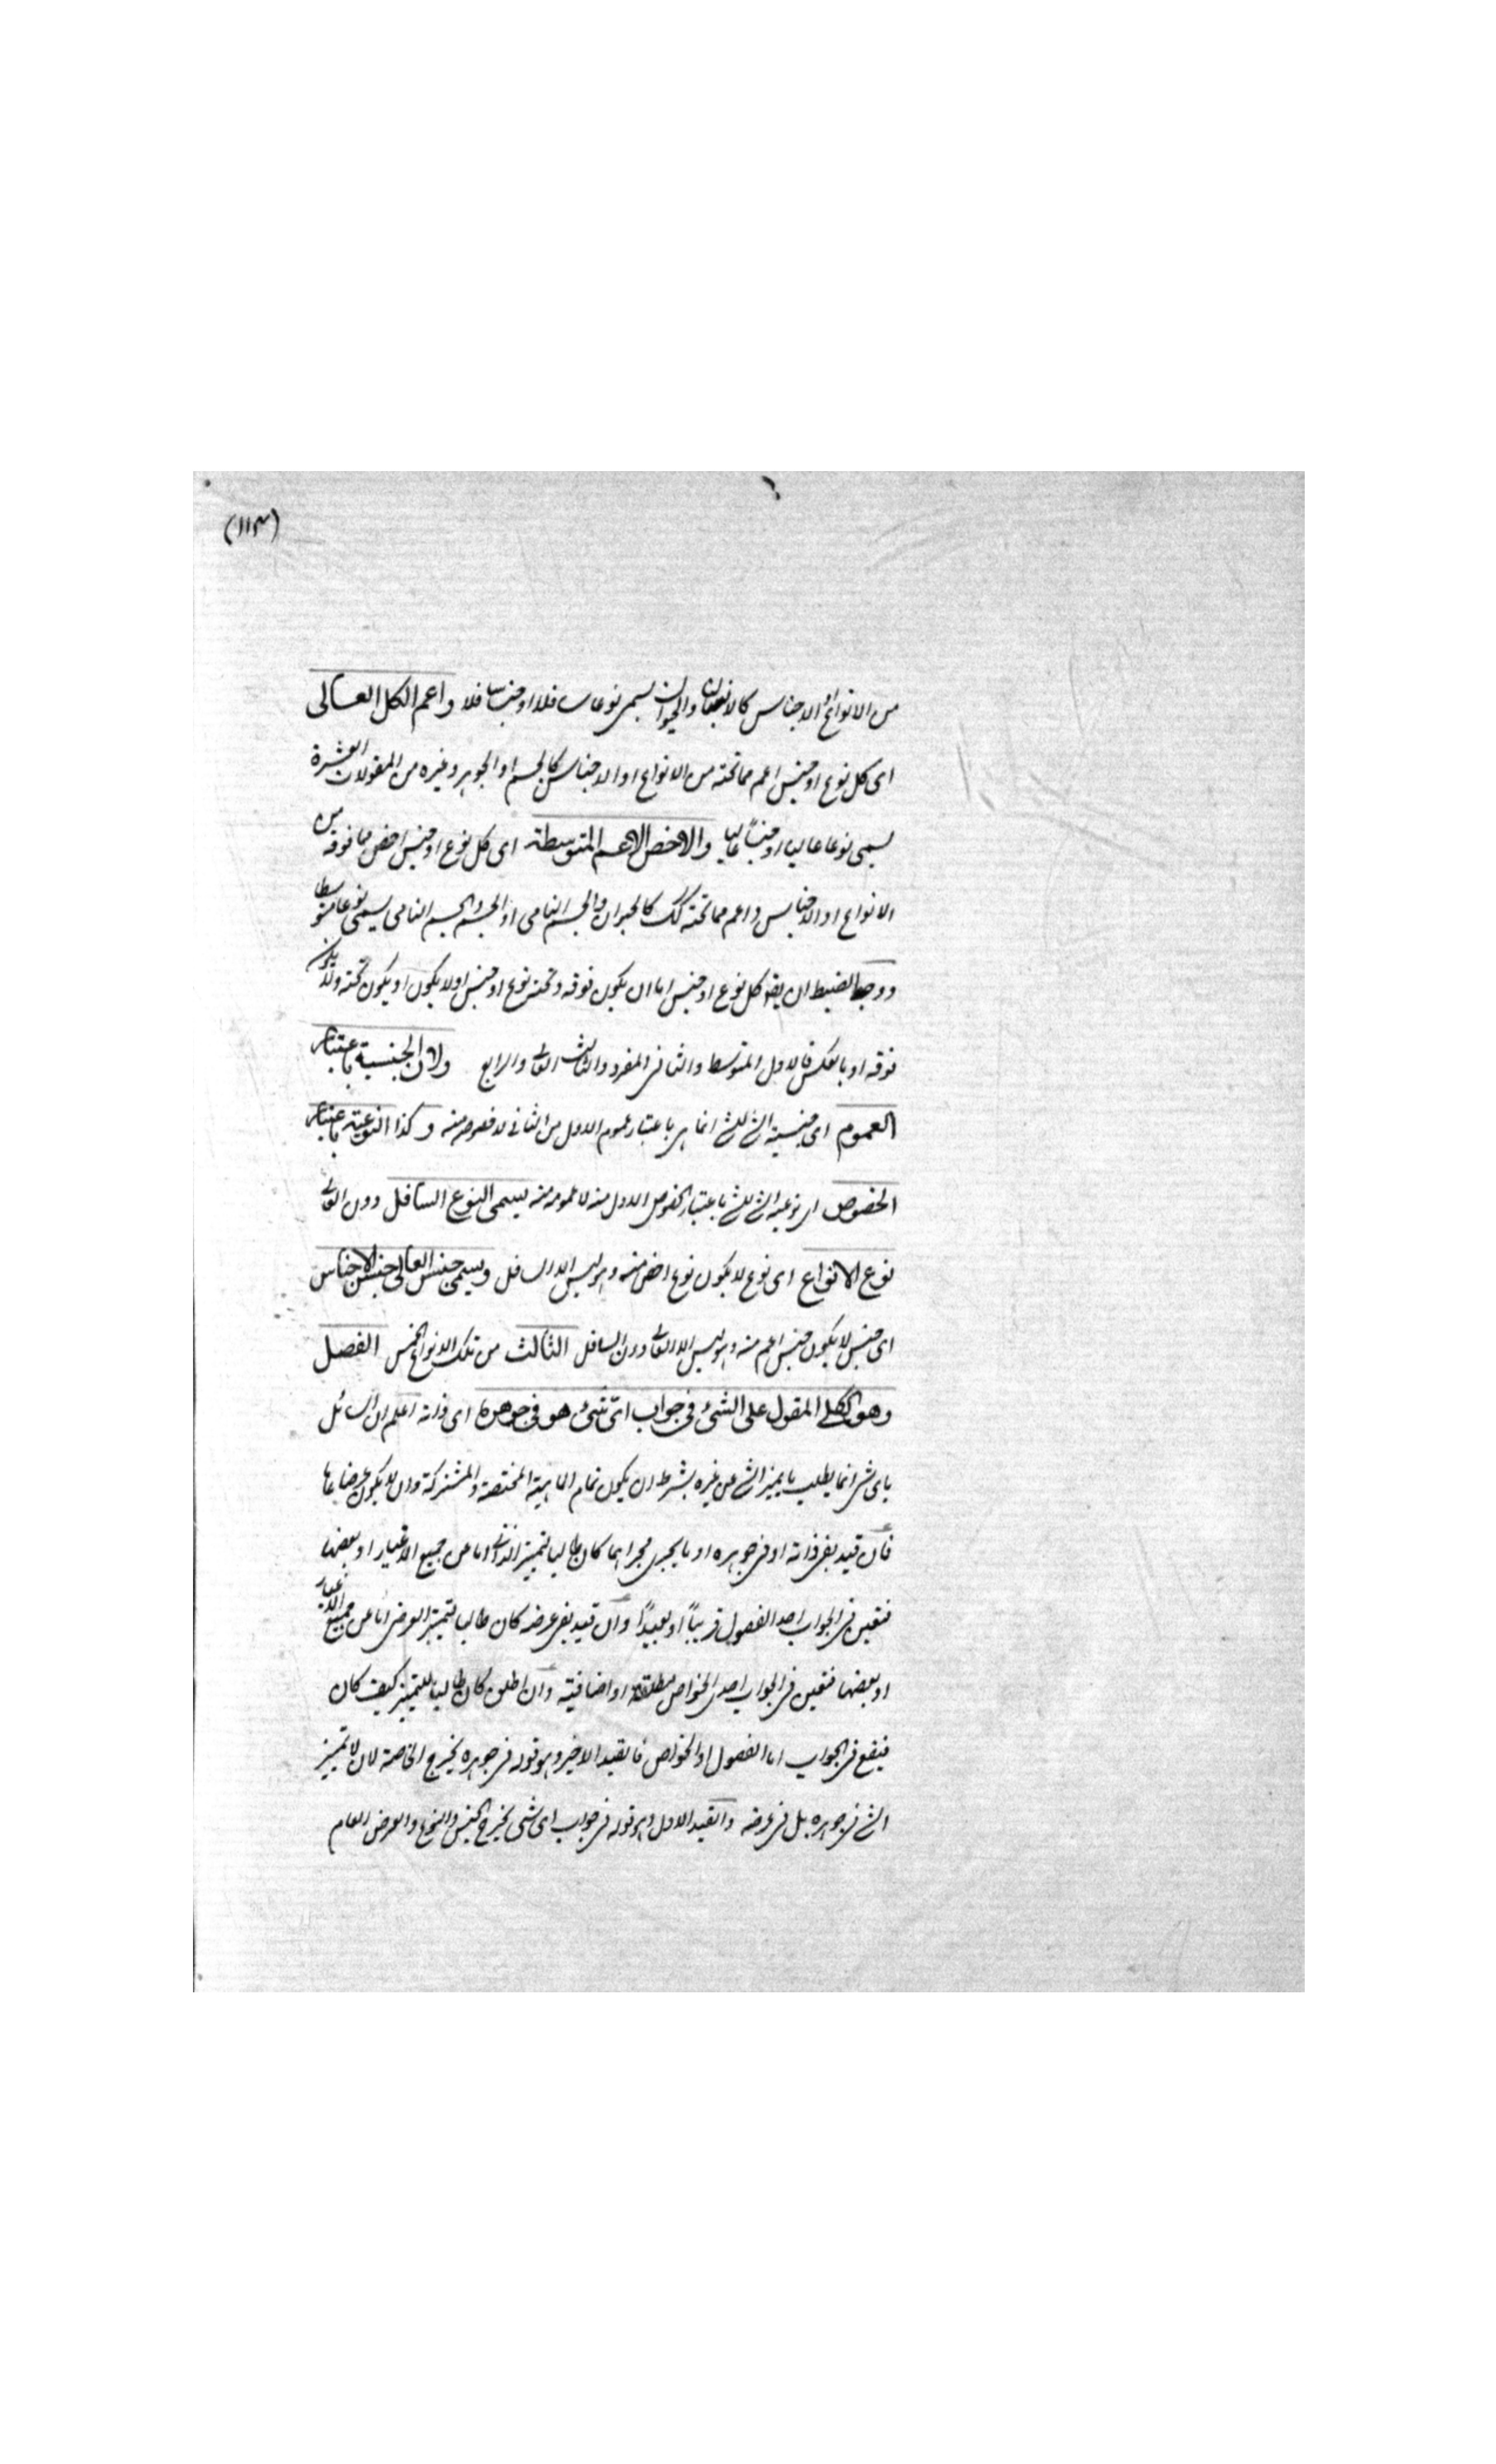 (١١٣)
من الانواع او الاجناس كالانسان والحيوان يسمى نوعا سافلا او جنسا سافلا واعم الكل العالى
اى كل نوع او جنس اعم مما تحته من الانواع او الاجناس كالجسم او الجوهر وغيره من المقولات العشرة
يسمى نوعا عاليا او جنسًا عاليا والاخص الاعم المتوسطة اى كل نوع او جنس اخص مما فوقه من
الانواع او الاجناس واعم مما تحته كك كالحيوان والجسم النامى او الجسم والجسم النامى يسمى نوعا متوسطا
ووجه الضبط ان يقه كل نوع او جنس اما ان يكون فوقه وتحته نوع او جنس اولا يكون او يكون تحته ولا يكون
فوقه او بالعكس فالاول المتوسط والثانى المفرد والثالث العالى والرابع ولان الجنسية باعتبار
العموم اى جنسية الشئ للشئ انما هى باعتبار عموم الاول من الثانى لا خصوصه منه وكذا النوعية باعتبار
الخصوص اى نوعية الشئ للشئ باعتبار الخصوص الاول منه لا عمومه منه يسمى النوع السافل دون العالى
نوع الانواع اى نوع لا يكون نوع اخص منه وهو ليس الا السافل ويسمى جنس العالى جنس الاجناس
اى جنس لا يكون جنس اعم منه وهو ليس الا العالى دون السافل الثالث من تلك الانواع الخمس الفصل
وهو الكلى المقول على الشئ فى جواب اىّ شئ هو فى جوهره اى ذاته اعلم ان السائل
باى شئ انما يطلب ما يميز الشئ عن غيره بشرط ان يكون تمام الماهية المختصة والمشتركة وان لا يكون عرضا عاما
فان قيد بفى ذاته او فى جوهره او ما يجرى مجراهما كان طالبا لتميز الذاتى اما عن جميع الاغيار او بعضها
فتعين فى الجواب احد الفصول قريبًا او بعيدًا وان قيد بفى عرضه كان طالبا لتميز العرضى اما عن جميع الاغيار
او بعضها فتعين فى الجواب احدى الخواص مطلقة او اضافية وان اطلق كان طالبا للتميز كيف كان
فيقع فى الجواب اما الفصول او الخواص فالقيد الاخير وهو قوله فى جوهره يخرج الخاصة لان لا تميز
الشئ فى جوهره بل فى عرضه والقيد الاول وهو قوله فى جواب اى شئ يخرج الجنس والنوع والعرض العام